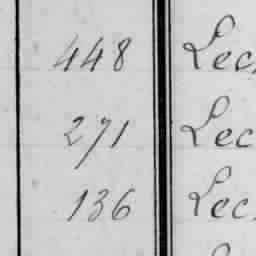 448 Lec
271 Lec
136 Lec